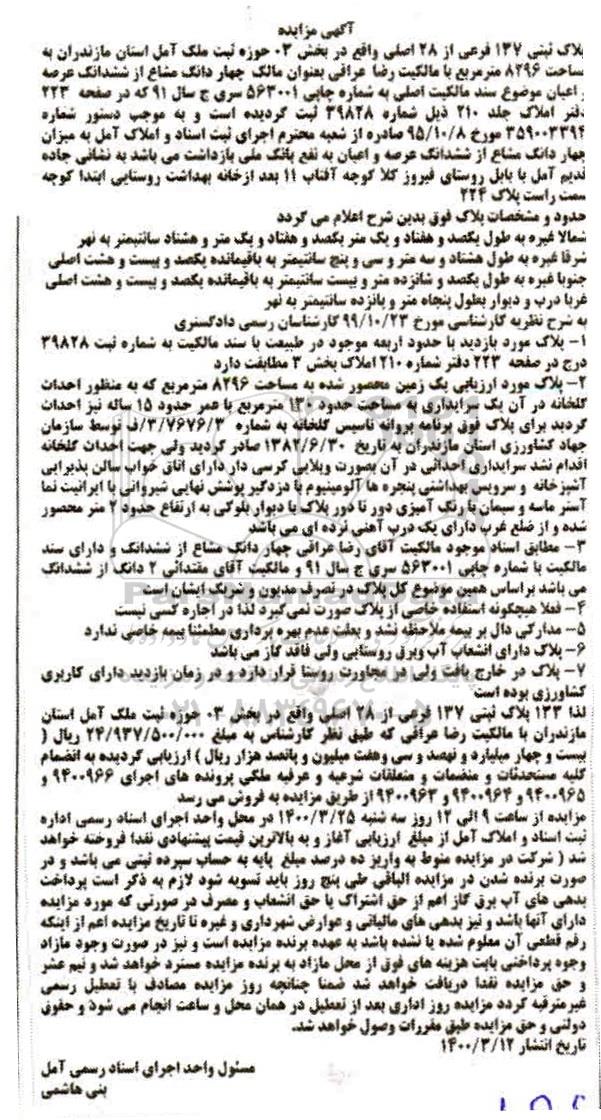 آگهی مزایده
پلاک ثبتی ۱۳۷ فرعی از ۲۸ اصلی واقع در بخش ۰۳ حوزه ثبت ملک آمل استان مازندران به
مساحت ۸۲۹۶ مترمربع با مالکیت رضا عراقی بعنوان مالک چهار دانگ مشاع از ششدانگ عرصه
و اعیان موضوع سند مالکیت اصلی به شماره چاپی ۵۶۳۰۰۱ سری ج سال ۹۱ که در صفحه ۲۲۳
دفتر املاک جلد ۲۱۰ ذیل شماره ۳۹۸۲۸ ثبت گردیده است و به موجب دستور شماره
۳۵۹۰۰۳۳۹۴ مورخ ۹۵/۱۰/۸ صادره از شعبه محترم اجرای ثبت اسناد و املاک آمل به میزان
چهار دانگ مشاع از ششدانگ عرصه و اعیان به نفع بانک ملی بازداشت می باشد به نشانی جاده
قدیم آمل با بابل روستای فیروز کلا کوچه آفتاب ۱۱ بعد ازخانه بهداشت روستایی ابتدا کوچه
سمت راست پلاک ۲۲۴
حدود و مشخصات پلاک فوق بدین شرح اعلام می گردد
شمالا غیره به طول یکصد و هفتاد و یک متر یکصد و هفتاد و یک متر و هشتاد سانتیمتر به نهر
شرقا غیره به طول هشتاد و سه متر و سی و پنج سانتیمتر به باقیمانده یکصد و بیست و هشت اصلی
جنوبا غیره به طول یکصد و شانزده متر و بیست سانتیمتر به باقیمانده یکصد و بیست و هشت اصلی
غربا درب و دیوار بطول پنجاه متر و پانزده سانتیمتر به نهر
به شرح نظریه کارشناسی مورخ ۹۹/۱۰/۲۳ کارشناسان رسمی دادگستری
۱- پلاک مورد بازدید با حدود اربعه موجود در طبیعت با سند مالکیت به شماره ثبت ۳۹۸۲۸
درج در صفحه ۲۲۳ دفتر شماره ۲۱۰ املاک بخش ۳ مطابقت دارد
۲- پلاک مورد ارزیابی یک زمین محصور شده به مساحت ۸۲۹۶ مترمربع که به منظور احداث
گلخانه در آن یک سرایداری به مساحت حدود ۱۳۰ مترمربع با عمر حدود ۱۵ ساله نیز احداث
گردید برای پلاک فوق برنامه پروانه تاسیس گلخانه به شماره ۳/۷۶۷۶/۳/ف توسط سازمان
جهاد کشاورزی استان مازندران به تاریخ ۱۳۸۲/۶/۳۰ صادر گردید ولی جهت احداث گلخانه
اقدام نشد سرایداری احداثی در آن بصورت ویلایی کرسی دار دارای اتاق خواب سالن پذیرایی
آشپزخانه و سرویس بهداشتی پنجره ها آلومینیوم با دزدگیر پوشش نهایی شیروانی با ایرانیت نما
آستر ماسه و سیمان با رنگ آمیزی دور تا دور پلاک با دیوار بلوکی به ارتفاع حدود ۲ متر محصور
شده و از ضلع غرب دارای یک درب آهنی نرده ای می باشد
۳- مطابق اسناد موجود مالکیت آقای رضا عراقی چهار دانگ مشاع از ششدانگ و دارای سند
مالکیت با شماره چاپی ۵۶۳۰۰۱ سری ج سال ۹۱ و مالکیت آقای مقتدائی ۲ دانگ از ششدانگ
می باشد براساس همین موضوع کل پلاک در تصرف مدیون و شریک ایشان است
۴- فعلا هیچگونه استفاده خاصی از پلاک صورت نمی گیرد لذا در اجاره کسی نیست
۵- مدارکی دال بر بیمه ملاحظه نشد و بعلت عدم بهره برداری مطمئنا بیمه خاصی ندارد
۶- پلاک دارای انشعاب آب وبرق روستایی ولی فاقد گاز می باشد
۷- پلاک در خارج بافت ولی در مجاورت روستا قرار دارد و در زمان بازدید دارای کاربری
کشاورزی بوده است
لذا ۱۳۳ پلاک ثبتی ۱۳۷ فرعی از ۲۸ اصلی واقع در بخش ۰۳ حوزه ثبت ملک آمل استان
مازندران با مالکیت رضا عراقی که طبق نظر کارشناس به مبلغ ۲۴/۹۳۷/۵۰۰/۰۰۰ ریال (
بیست و چهار میلیارد و نهصد و سی وهفت میلیون و پانصد هزار ریال ) ارزیابی گردیده به انضمام
کلیه مستحدثات و منضمات و متعلقات شرعیه و عرفیه ملکی پرونده های اجرای ۹۴۰۰۹۶۶ و
۹۴۰۰۹۶۵ و ۹۴۰۰۹۶۴ و ۹۴۰۰۹۶۳ از طریق مزایده به فروش می رسد
مزایده از ساعت ۹ الی ۱۲ روز سه شنبه ۱۴۰۰/۳/۲۵ در محل واحد اجرای اسناد رسمی اداره
ثبت اسناد و املاک آمل از مبلغ ارزیابی آغاز و به بالاترین قیمت پیشنهادی نقدا فروخته خواهد
شد ( شرکت در مزایده منوط به واریز ده درصد مبلغ پایه به حساب سپرده ثبتی می باشد و در
صورت برنده شدن در مزایده الباقی طی پنج روز باید تسویه شود لازم به ذکر است پرداخت
بدهی های آب برق گاز اعم از حق اشتراک یا حق انشعاب و مصرف در صورتی که مورد مزایده
دارای آنها باشد و نیز بدهی های مالیاتی و عوارض شهرداری و غیره تا تاریخ مزایده اعم از اینکه
رقم قطعی آن معلوم شده یا نشده باشد به عهده برنده مزایده است و نیز در صورت وجود مازاد
وجوه پرداختی بابت هزینه های فوق از محل مازاد به برنده مزایده مسترد خواهد شد و نیم عشر
و حق مزایده نقدا دریافت خواهد شد ضمنا چنانچه روز مزایده مصادف با تعطیل رسمی
غیرمترقبه گردد مزایده روز اداری بعد از تعطیل در همان محل و ساعت انجام می شود و حقوق
دولتی و حق مزایده طبق مقررات وصول خواهد شد.
تاریخ انتشار ۱۴۰۰/۳/۱۲
مسئول واحد اجرای اسناد رسمی آمل
بنی هاشمی